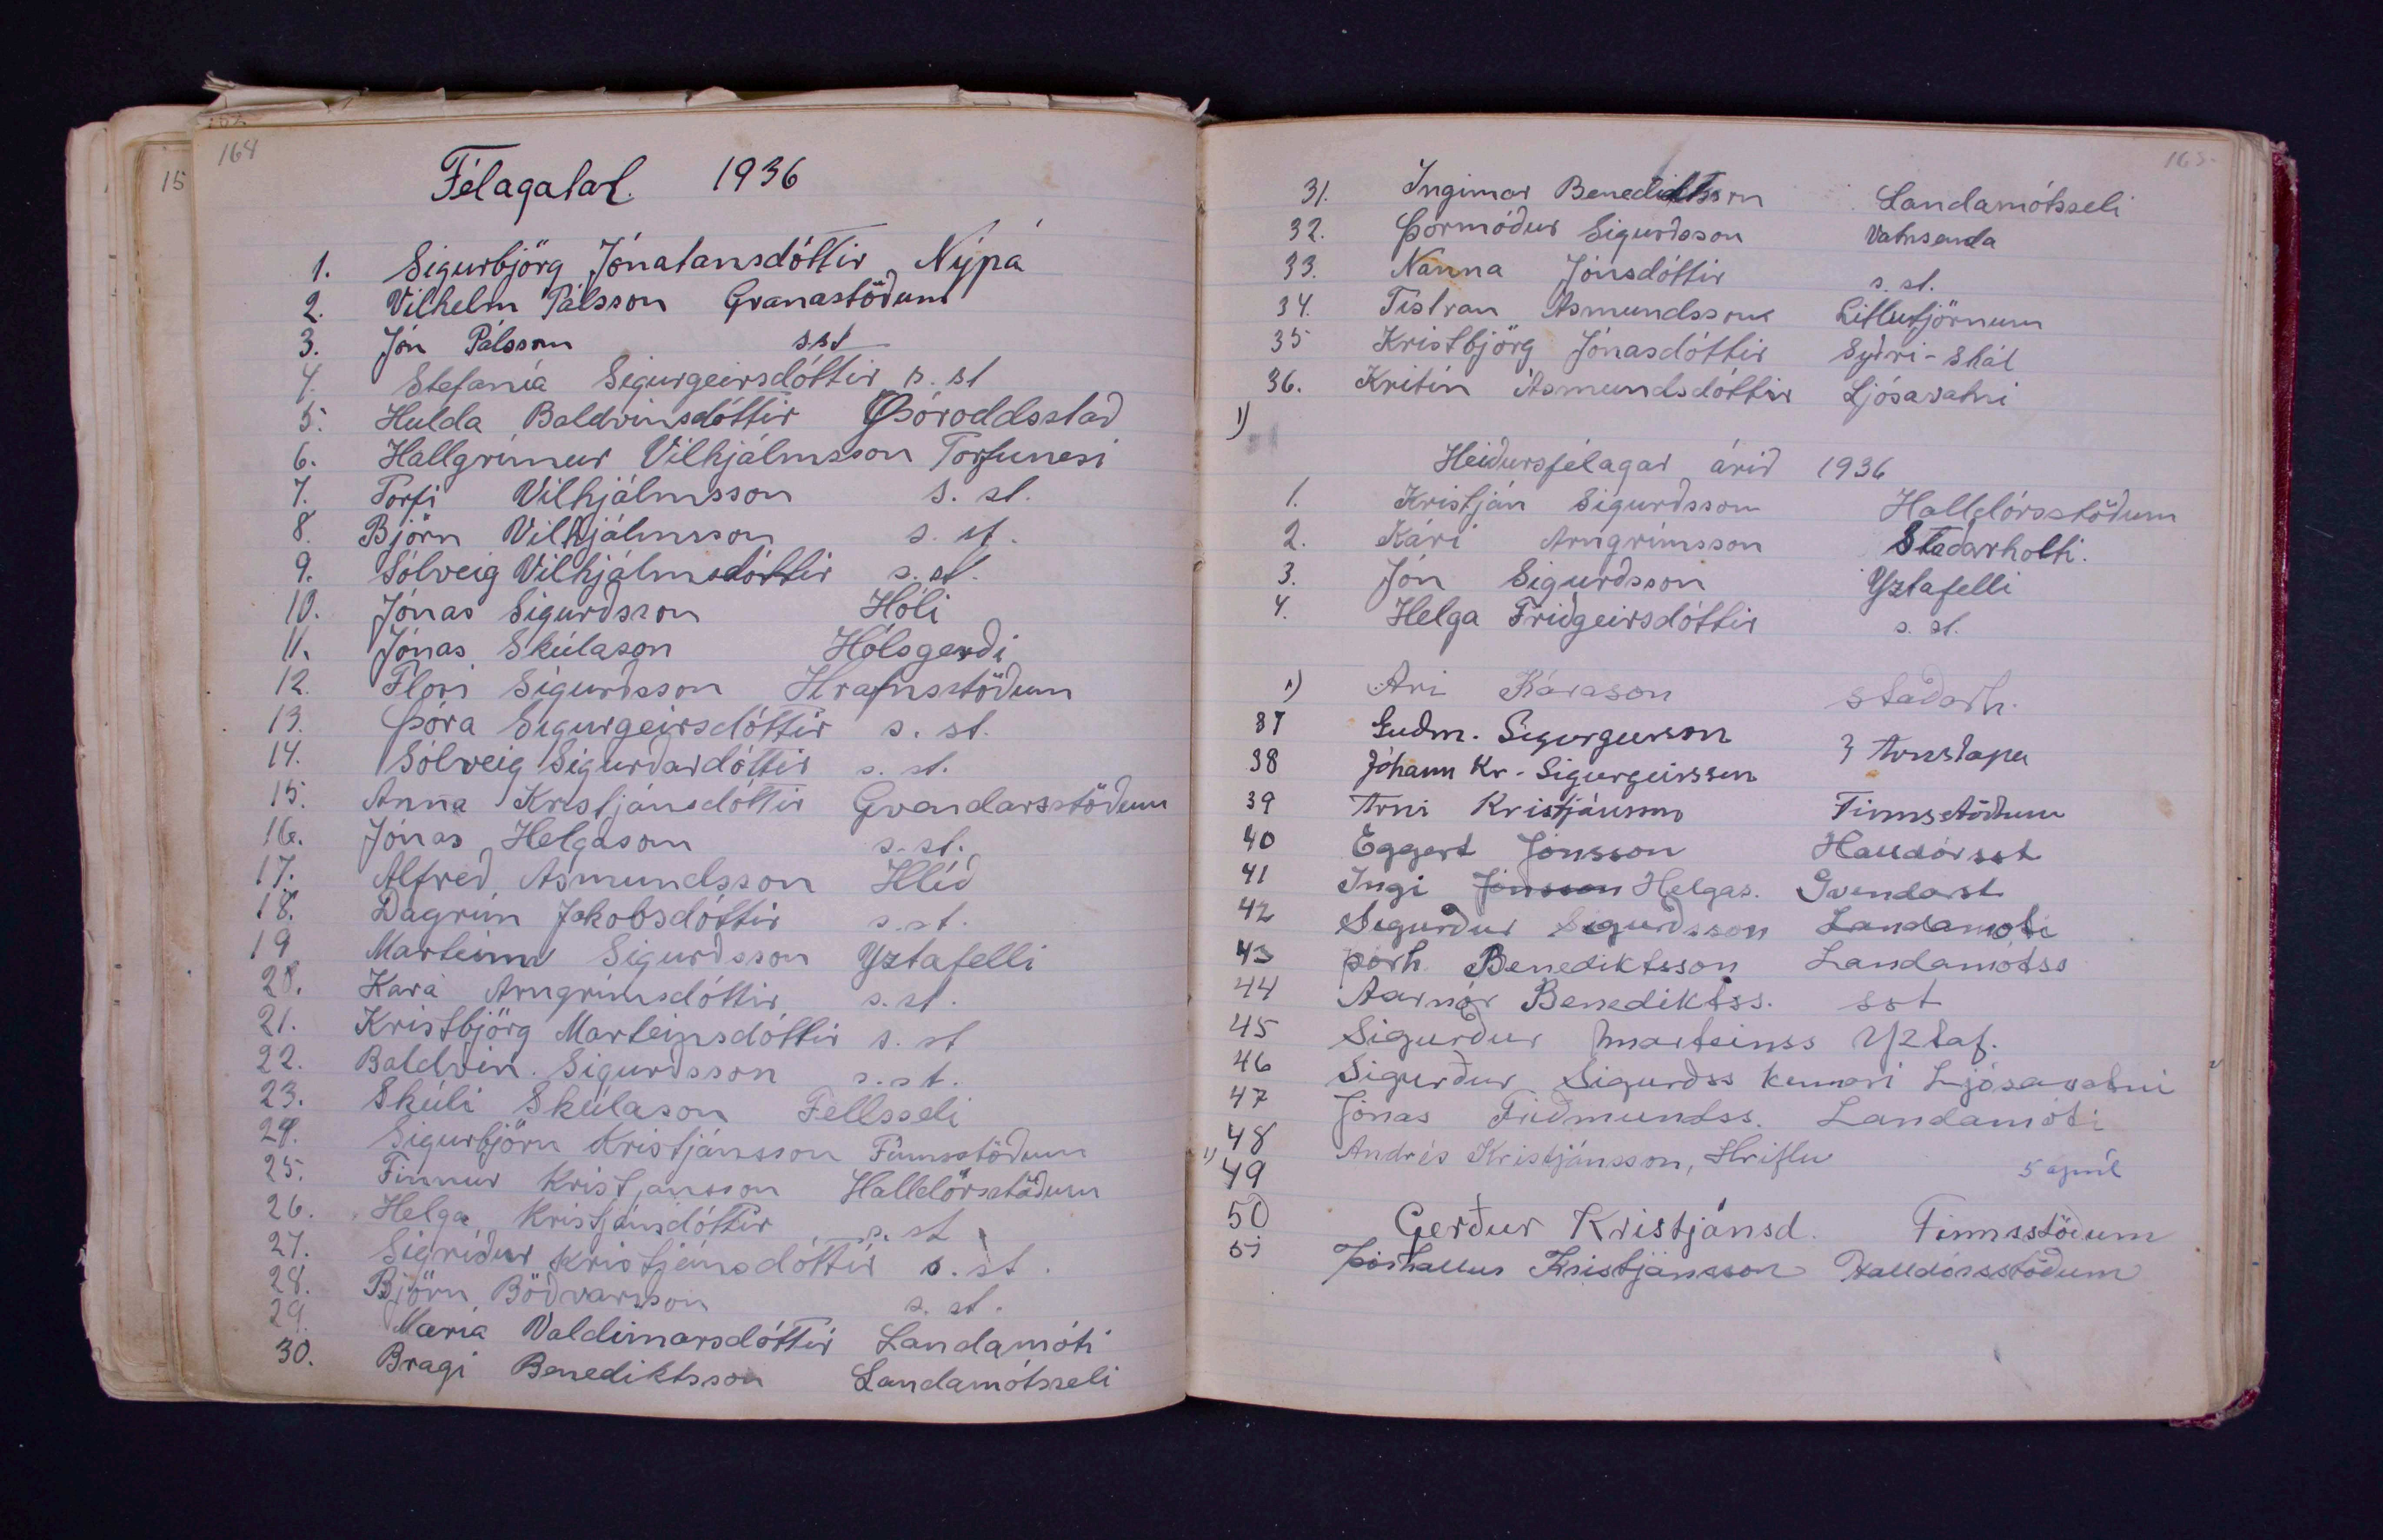 164
Félagatal. 1936
1. Sigurbjörg Jónatansdóttir Nýpá
2. Vilhelm Pálsson Granastöðum
3. Jón Pálsson s.st
4. Stefanía Sigurgeirsdóttir s. st
5. Hulda Baldvinsdóttir Þóroddsstað
6. Hallgrímur Vilhjálmsson Torfunesi
7. Torfi Vilhjálmsson s. st.
8. Björn Vilhjálmsson s. st.
9. Sólveig Vilhjálmsdóttir s. st.
10. Jónas Sigurðsson Hóli
11. Jónas Skúlason Hólsgerði
12. Flosi Sigurðsson Hrafnsstöðum
13. Þóra Sigurgeirsdóttir s. st.
14. Sólveig Sigurðardóttir s. st.
15. Anna Kristjánsdóttir Gvendarsstöðum
16. Jónas Helgason s. st.
17. Alfreð Ásmundsson Hlíð
18. Dagrún Jakobsdóttir s. st.
19 Marteinn Sigurðsson Yztafelli
20. Kara Arngrímsdóttir s. st.
21. Kristbjörg Marteinsdóttir s. st
22. Baldvin Sigurðsson s. st.
23. Skúli Skúlason Fellsseli
24. Sigurbjörn Kristjánsson Finnsstöðum
25. Finnur Kristjánsson Halldórsstöðum
26. Helga Kristjánsdóttir s. st
27. Sigríður Kristjánsdóttir s. st.
28. Björn Böðvarsson s. st.
29. María Valdimarsdóttir Landamóti
30. Bragi Benediktsson Landamótsseli
165
31. Ingimar Benediktsson Landamótsseli
32. Þormóður Sigurðsson Vatnsenda
33. Nanna Jónsdóttir s. st.
34. Tístran Ásmundsson Litlutjörnum
35 Kristbjörg Jónasdóttir Syðri-Skál
36. Kritín Ásmundsdóttir Ljósavatni
1)
Heiðursfélagar árið 1936
1. Kristján Sigurðsson Halldórsstöðum
2. Kári Arngrímsson Staðarholti.
3. Jón Sigurðsson Yztafelli
4. Helga Friðgeirsdóttir s. st.
1) Ari Kárason Staðarh.
37 Guðm. Sigurgeirson
38 Jóhann Kr. Sigurgeirsson } Arnstapa
39 Árni Kristjánsson Finnsstöðum
40 Eggert Jónsson Halldórsst
41 Ingi Jónsson Helgas. Gvendarst
42 Sigurður Sigurðsson Landamóti
43 Þórh. Benediktsson Landamótss
44 Aarnór Benediktss. sst
45 Sigurður Marteinss Yztaf.
46 Sigurður Sigurðss kennari Ljósavatni
47 Jónas Friðmundss. Landamóti
48 Andrés Kristjánsson, Hriflu
1) 49 5 apríl
50 Gerður Kristjánsd. Finnsstöðum
51 Þórhallur Kristjánsson Halldórsstöðum